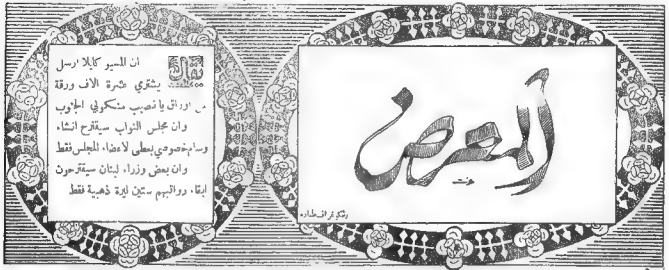 المعرض
زنكوغراف طباره
يقال ان المسيو كابلا ارسل
يشتري عشرة الاف ورقة
من اوراق يا نصيب منكوبي الجنوب
وان مجلس النواب سيقترح انشاء
وسام خصوصي يعطى لاعضاء المجلس فقط
وان بعض وزراء لبنان سيقترحون
ابقاء رواتبهم ستين ليرة ذهبية فقط